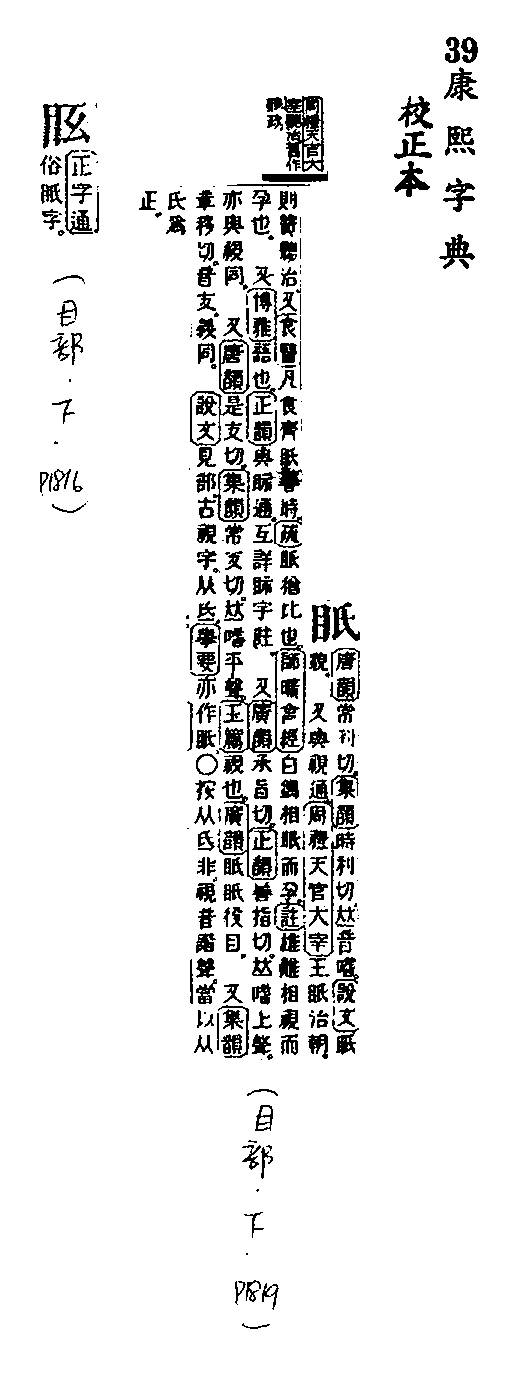 39康熙字典
校正本
眡
唐韻常利切集韻時利切𠀤音嗜說文眡
貌 又與視通周禮天官大宰王眡治朝
則贊聽治又食醫凡食齊眡春時疏眡猶比也師曠禽經白鷁相眡而孕註雄雌相視而
孕也 又博雅語也正韻與眎通互詳眎字註 又廣韻承旨切正韻善指切𠀤嗜上聲
亦與視同 又唐韻是支切集韻常支切𠀤嗜平聲玉篇視也廣韻眡眡役目 又集韻
章移切音支義同 說文見部古視字从氏舉要亦作眂○按从氐非視音諧聲當以从
氏爲
正
周禮天官大
(目部·下·P1819)
正字通
俗眡字
(目部·下·P1816)